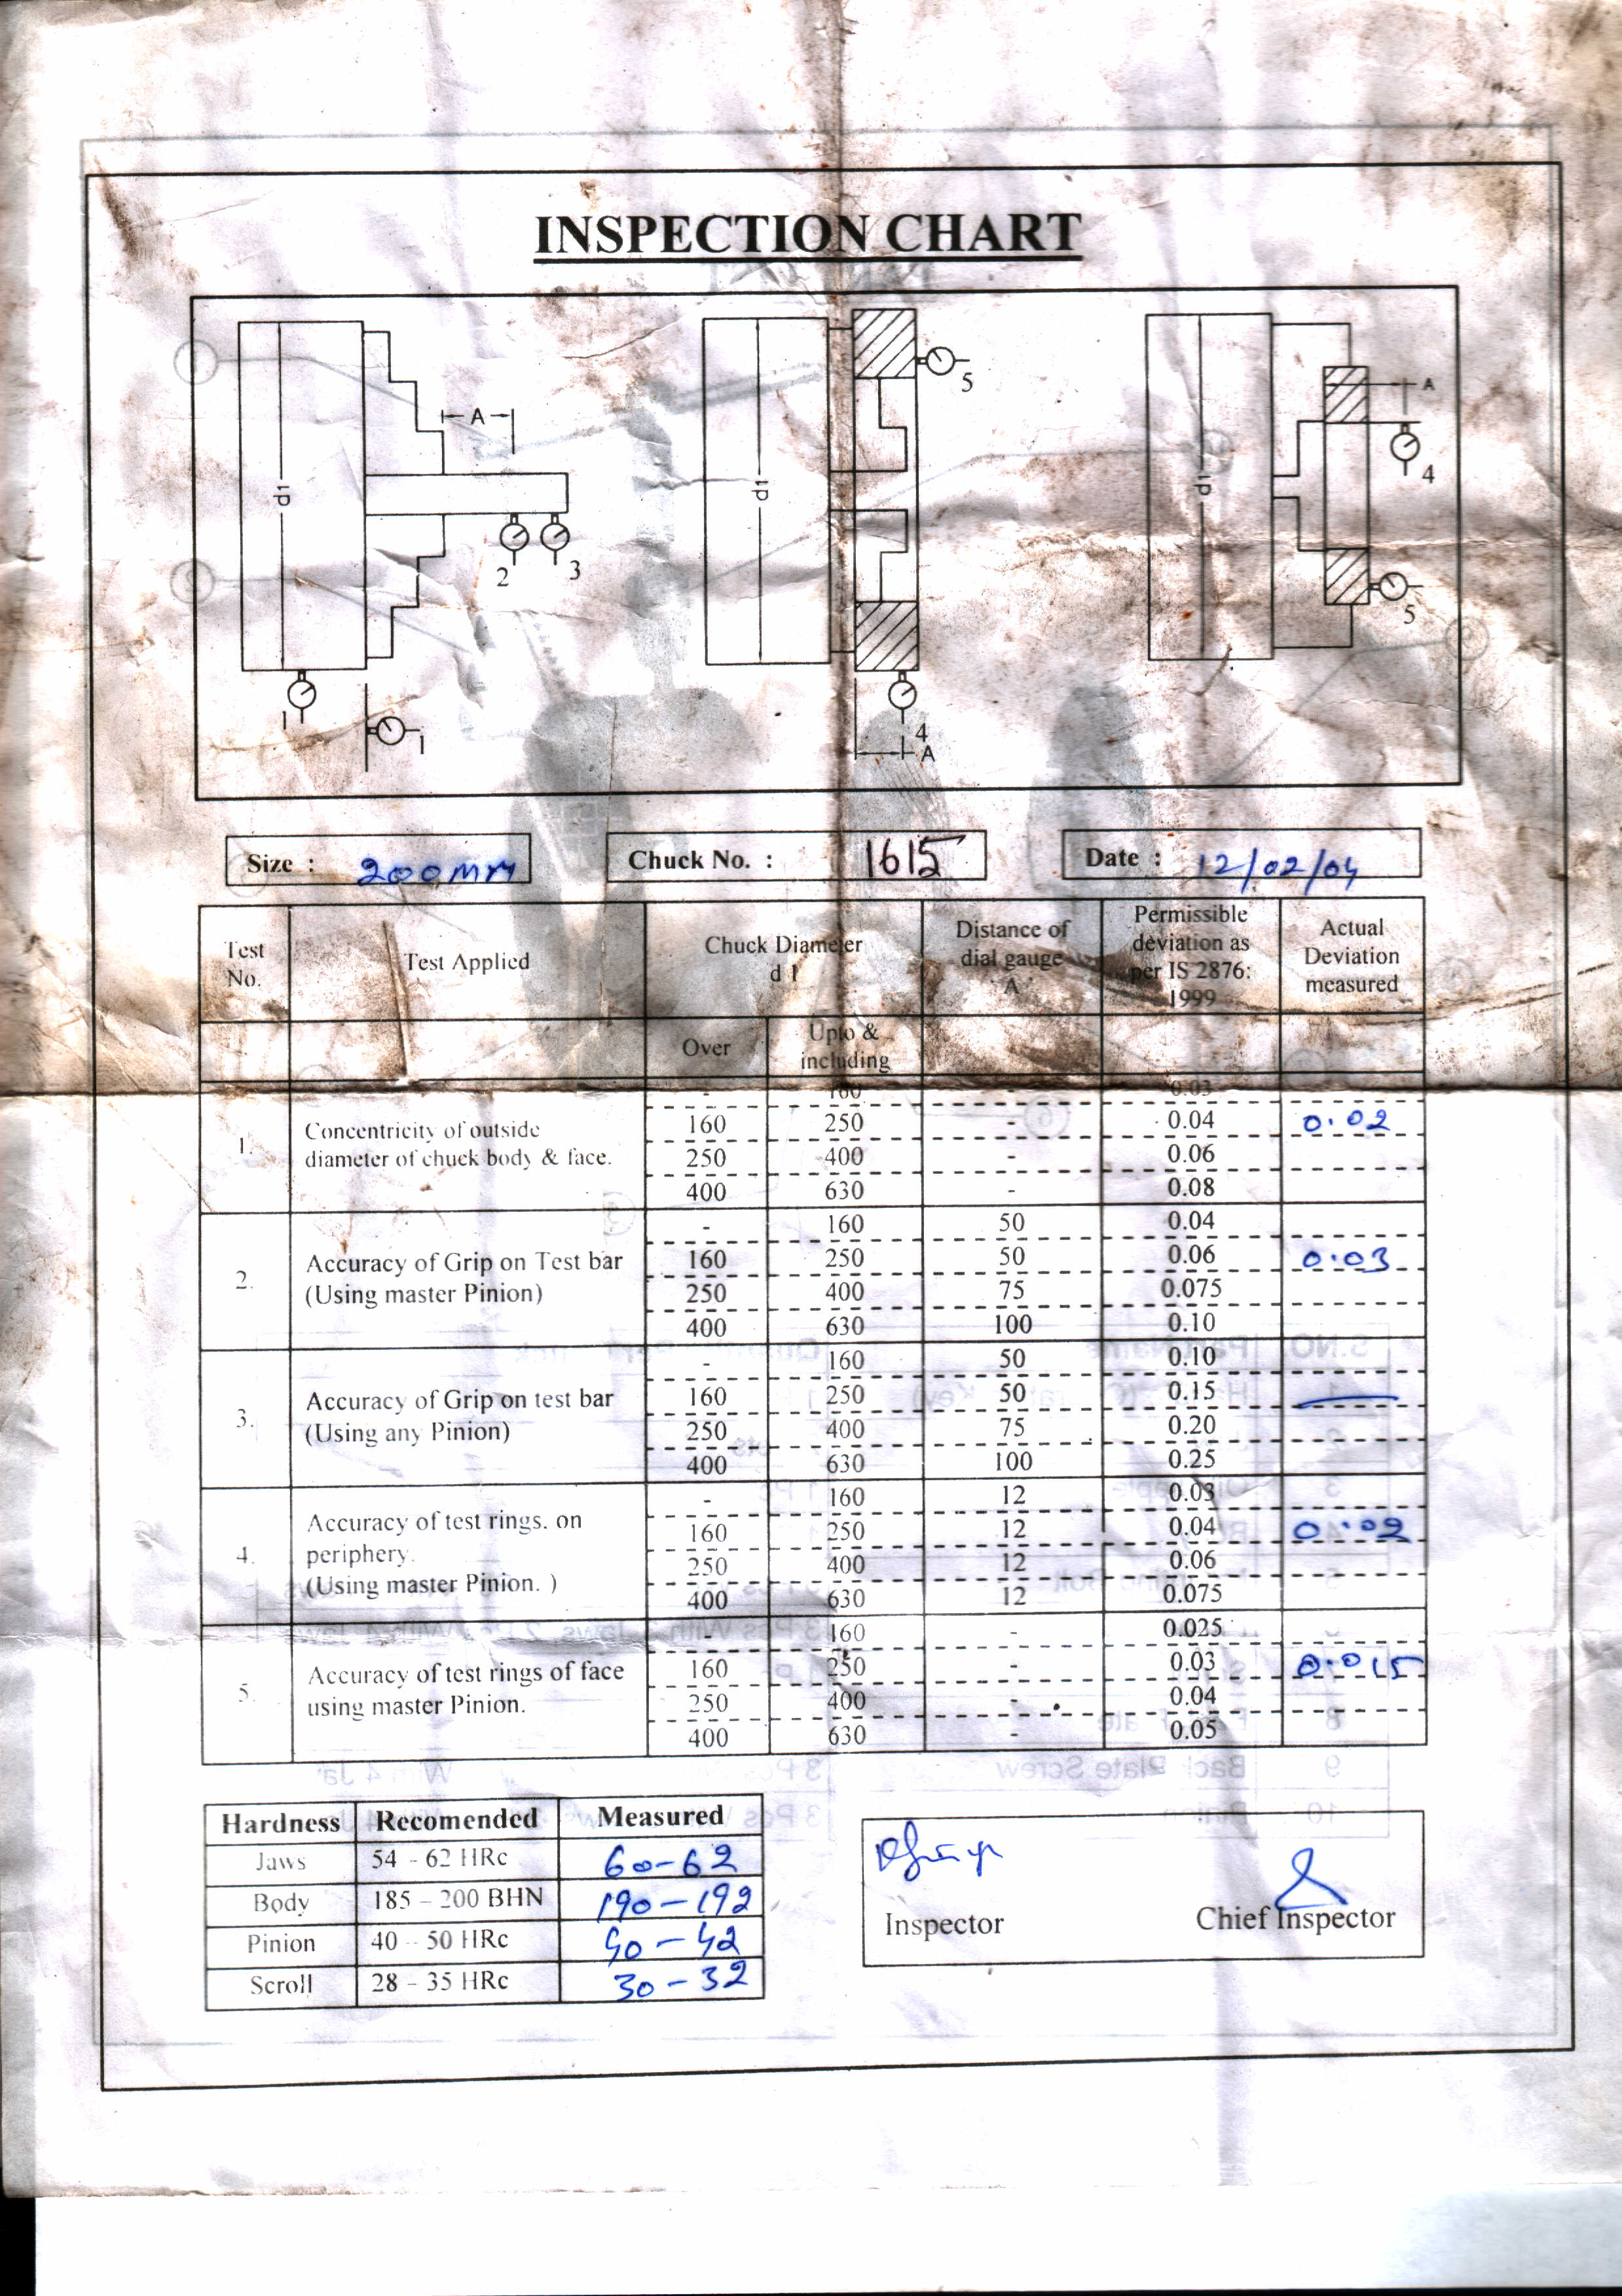 INSPECTION CHART
d1
A
2
3
1
1
d1
5
4
A
d1
A
4
5
Size : 200MM
Chuck No. : 1615
Date : 12/02/04
Test No.
Test Applied
Chuck Diameter d 1
Distance of dial gauge A
Permissible deviation as per IS 2876: 1999
Actual Deviation measured
Over
Upto & including
1. Concentricity of outside diameter of chuck body & face.
- 160 - 0.03
160 250 - 0.04 0.02
250 400 - 0.06
400 630 - 0.08
2. Accuracy of Grip on Test bar (Using master Pinion)
- 160 50 0.04
160 250 50 0.06 0.03
250 400 75 0.075
400 630 100 0.10
3. Accuracy of Grip on test bar (Using any Pinion)
- 160 50 0.10
160 250 50 0.15 —
250 400 75 0.20
400 630 100 0.25
4. Accuracy of test rings. on periphery. (Using master Pinion. )
- 160 12 0.03
160 250 12 0.04 0.02
250 400 12 0.06
400 630 12 0.075
5. Accuracy of test rings of face using master Pinion.
- 160 - 0.025
160 250 - 0.03 0.015
250 400 - 0.04
400 630 - 0.05
Hardness Recomended Measured
Jaws 54 - 62 HRc 60-62
Body 185 - 200 BHN 190-192
Pinion 40 - 50 HRc 40-42
Scroll 28 - 35 HRc 30-32
Inspector
Chief Inspector